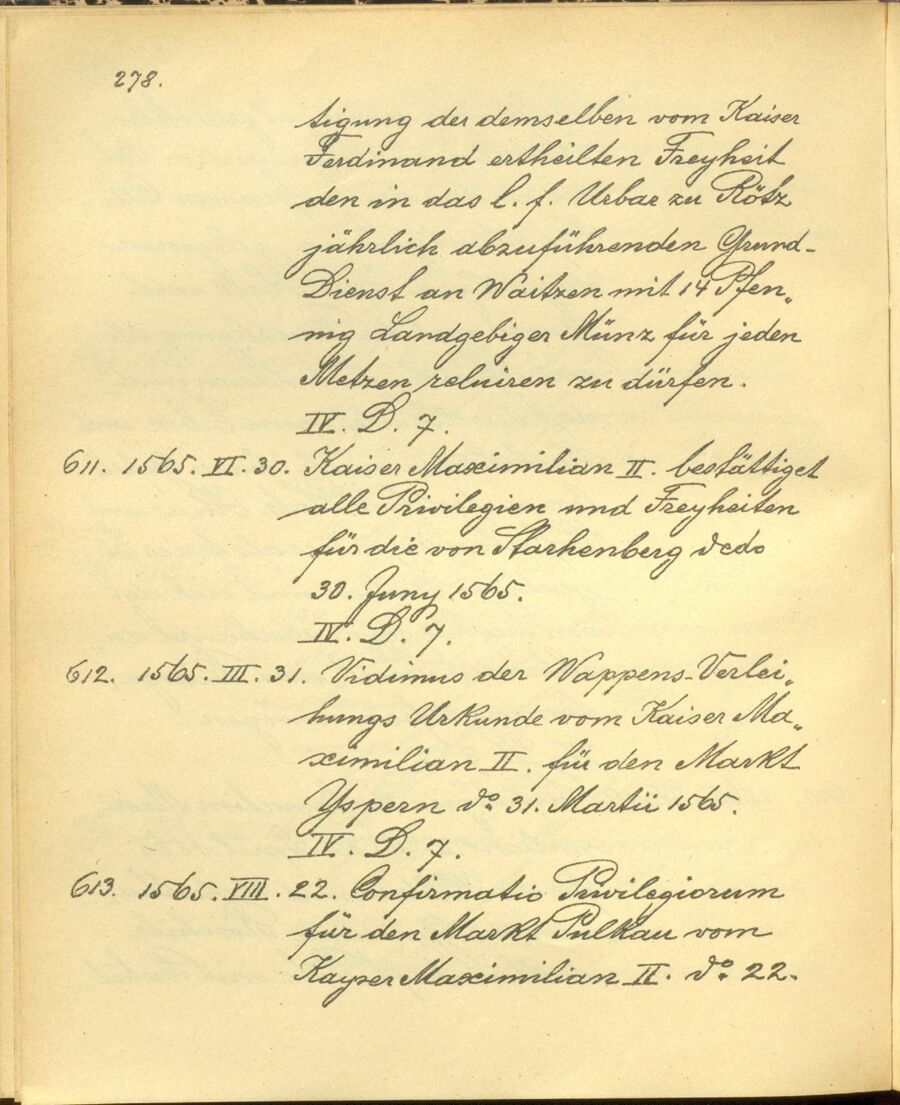 278.
tigung der demselben vom Kaiser
Ferdinand ertheilten Freyheit
den in das l. f. Urbar zu Rötz
jährlich abzuführenden Grund-
Dienst an Waitzen mit 14 Pfen„
nig Landgebiger Münz für jeden
Metzen reluiren zu dürfen.
IV. D. 7.
611. 1565. VI. 30. Kaiser Maximilian II. bestättiget
alle Privilegien und Freyheiten
für die von Starhenberg dcdo
30. Juny 1565.
IV. D. 7.
612. 1565. III. 31. Vidimus der Wappens-Verlei„
hungs Urkunde vom Kaiser Ma„
ximilian II. für den Markt
Yspern do 31. Martii 1565.
IV. D. 7.
613. 1565. VIII. 22. Confirmatio Privilegiorum
für den Markt Pulkau vom
Kayser Maximilian II. do 22.